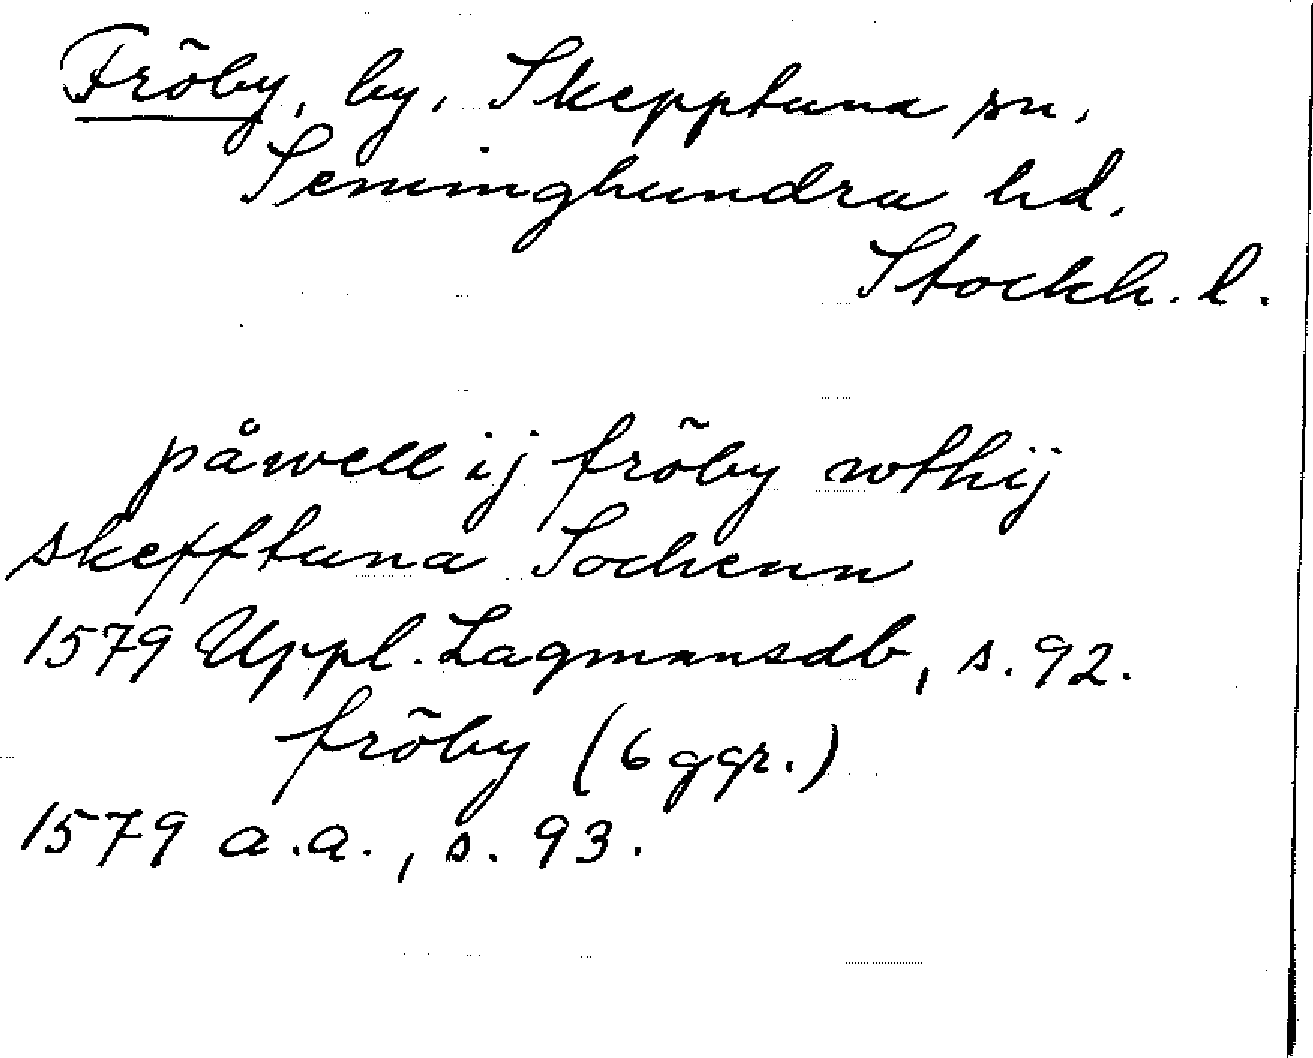 Fröby, by, Skepptuna sn.
Seminghundra hd.
Stockh. l.
påwell ij fröby wthij
skefftuna Sochenn
1579 Uppl. Lagmansdb, s. 92.
fröby (6 ggr.)
1579 a.a., s. 93.